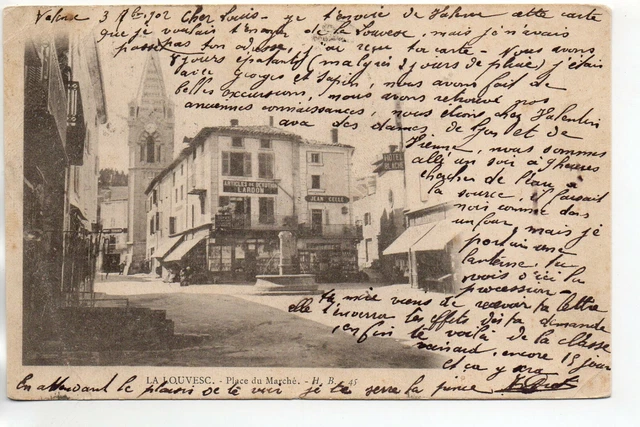 Valence 3 7bre 902 Cher Louis - je t'envoie de Valence cette carte
que je voulais t'envoyer de la Louvesc, mais je n'avais
pas ton adresse, j'ai reçu ta carte - nous avons
8 jours épatants (malgré 2 jours de pluie) j'étais
avec Georges et Sapin, nous avons fait de
belles excursions, nous avons retrouvé nos
anciennes connaissances, nous étions chez Valentin
avec des dames de Lyon et de
Vienne, nous sommes
allés un soir à 9 heures
chercher de l'eau à
la source, il faisait
noir comme dans
un four, mais je
portais une
lanterne, tu
vois d'ici la
procession -
ta mère viens de recevoir ta lettre
elle t'enverra les effets dès ta demande
enfin te voilà de la classe
veinard, encore 15 jours
et ça y sera
En attendant le plaisir de te voir je te serre la pince
ARTICLES DE DEVOTION
LARDON
JEAN
HOTEL
LA LOUVESC. - Place du Marché. - H. B. 45